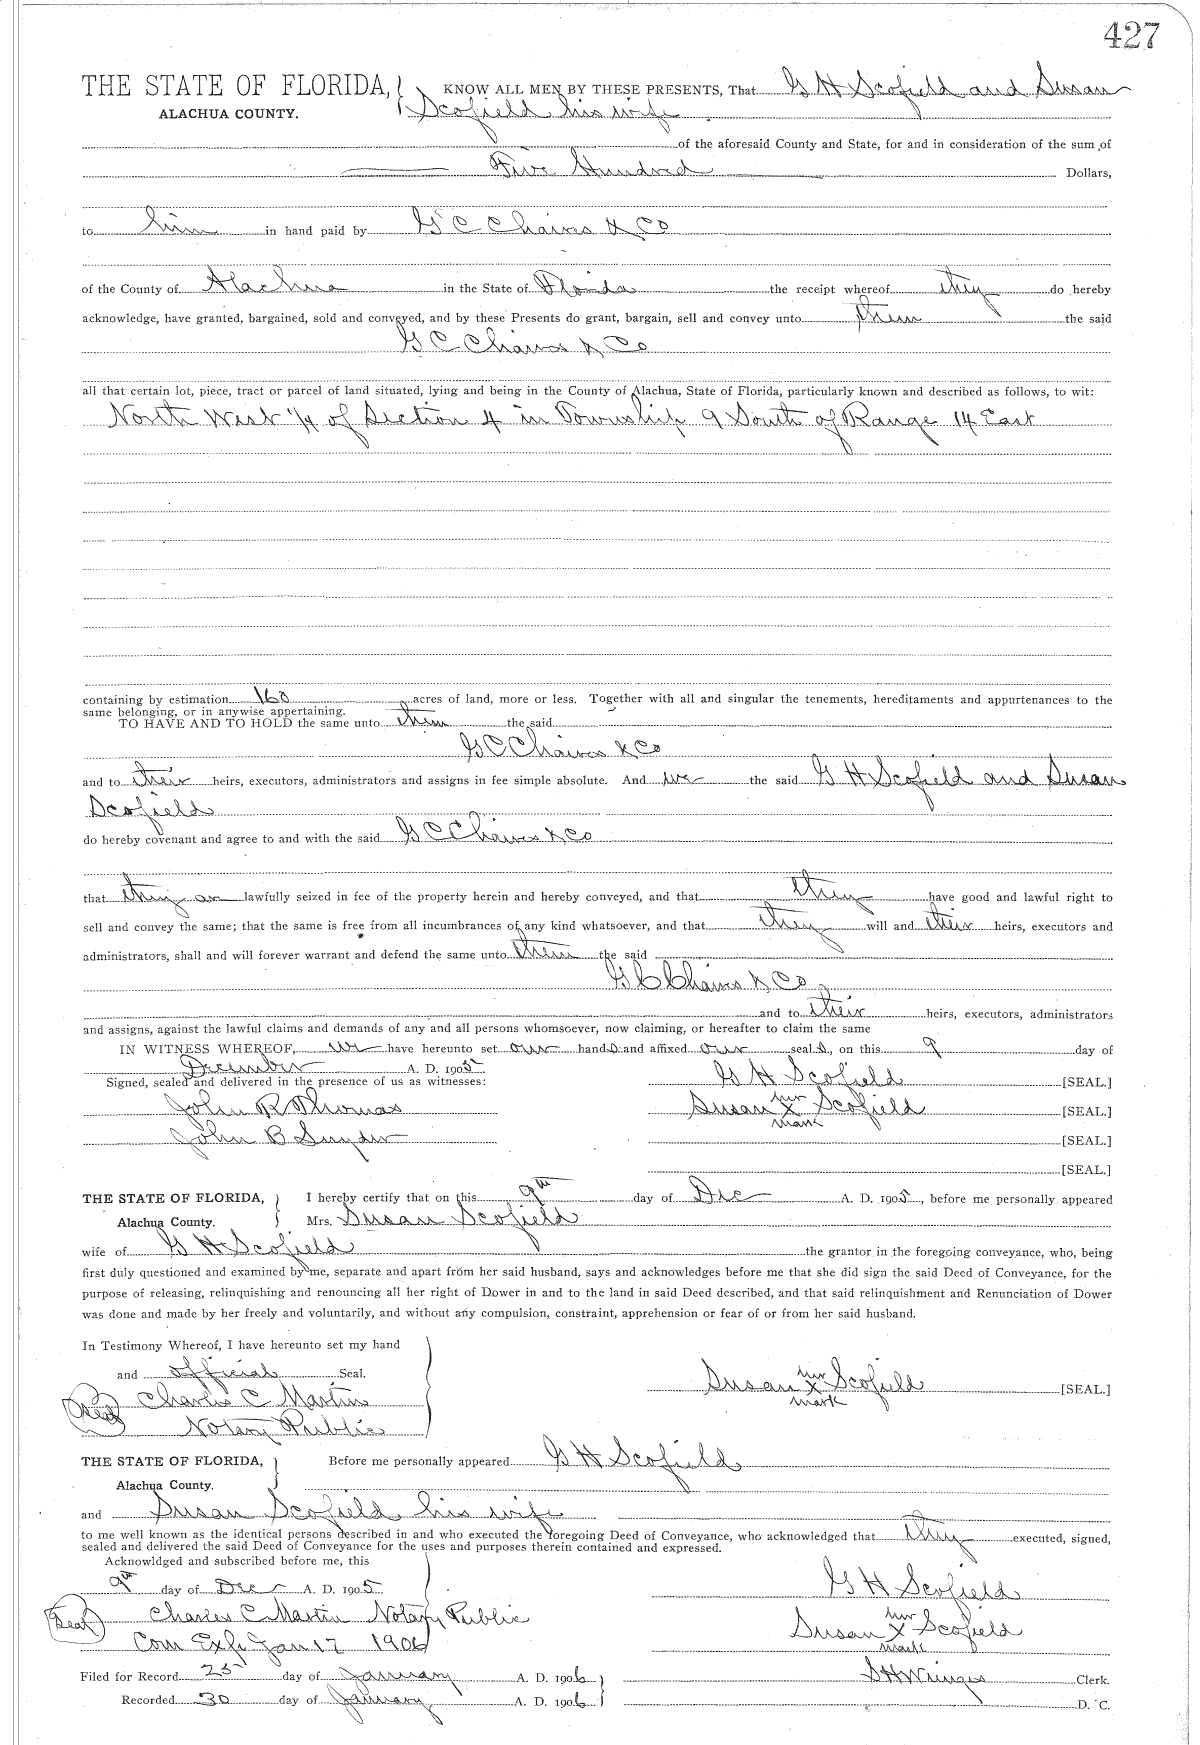 427
THE STATE OF FLORIDA, KNOW ALL MEN BY THESE PRESENTS, That G H Scofield and Susan
ALACHUA COUNTY. Scofield his wife
of the aforesaid County and State, for and in consideration of the sum of
Five Hundred Dollars,
to him in hand paid by G C Chaires & Co
of the County of Alachua in the State of Florida the receipt whereof they do hereby
acknowledge, have granted, bargained, sold and conveyed, and by these Presents do grant, bargain, sell and convey unto them the said
G C Chaires & Co
all that certain lot, piece, tract or parcel of land situated, lying and being in the County of Alachua, State of Florida, particularly known and described as follows, to wit:
North West 1/4 of Section 4 in Township 9 South of Range 14 East
containing by estimation 160 acres of land, more or less. Together with all and singular the tenements, hereditaments and appurtenances to the
same belonging, or in anywise appertaining.
TO HAVE AND TO HOLD the same unto them the said
G C Chaires & Co
and to their heirs, executors, administrators and assigns in fee simple absolute. And we the said G H Scofield and Susan
Scofield
do hereby covenant and agree to and with the said G C Chaires & Co
that they are lawfully seized in fee of the property herein and hereby conveyed, and that they have good and lawful right to
sell and convey the same; that the same is free from all incumbrances of any kind whatsoever, and that they will and their heirs, executors and
administrators, shall and will forever warrant and defend the same unto them the said
G C Chaires & Co
and to their heirs, executors, administrators
and assigns, against the lawful claims and demands of any and all persons whomsoever, now claiming, or hereafter to claim the same
IN WITNESS WHEREOF, we have hereunto set our hands and affixed our seals, on this 9 day of
December A. D. 1905
Signed, sealed and delivered in the presence of us as witnesses: G H Scofield [SEAL.]
John R Thomas Susan her X mark Scofield [SEAL.]
John B Snyder [SEAL.]
[SEAL.]
THE STATE OF FLORIDA, I hereby certify that on this 9th day of Dec A. D. 1905, before me personally appeared
Alachua County. Mrs. Susan Scofield
wife of G H Scofield the grantor in the foregoing conveyance, who, being
first duly questioned and examined by me, separate and apart from her said husband, says and acknowledges before me that she did sign the said Deed of Conveyance, for the
purpose of releasing, relinquishing and renouncing all her right of Dower in and to the land in said Deed described, and that said relinquishment and Renunciation of Dower
was done and made by her freely and voluntarily, and without any compulsion, constraint, apprehension or fear of or from her said husband.
In Testimony Whereof, I have hereunto set my hand
and official Seal. Susan her X mark Scofield [SEAL.]
Seal Charles C Martin
Notary Public
THE STATE OF FLORIDA, Before me personally appeared G H Scofield
Alachua County.
and Susan Scofield his wife
to me well known as the identical persons described in and who executed the foregoing Deed of Conveyance, who acknowledged that they executed, signed,
sealed and delivered the said Deed of Conveyance for the uses and purposes therein contained and expressed.
Acknowldged and subscribed before me, this
9th day of Dec A. D. 1905 G H Scofield
Seal Charles C Martin Notary Public Susan her X mark Scofield
Com Exp Jan 17 1906
Filed for Record 25 day of January A. D. 1906 Clerk.
Recorded 30 day of January A. D. 1906 D. C.